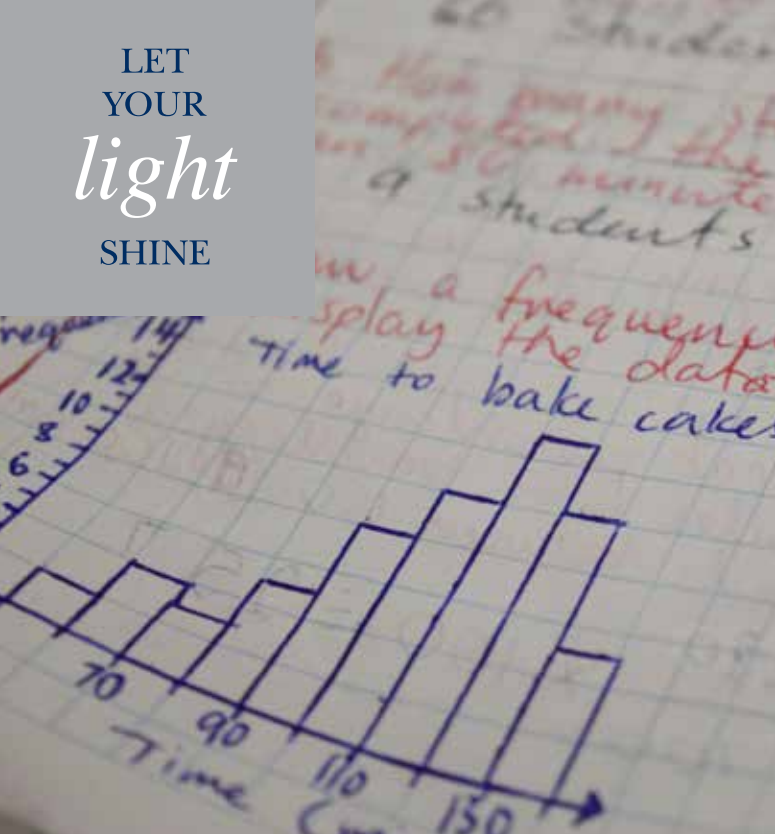 LET
YOUR
light
SHINE
60 Studen
How many st
completed the
an 150 minute
9 students
aw a frequenc
splay the data
Time to bake cakes
14
12
10
8
6
70
90
110
130
Time (m